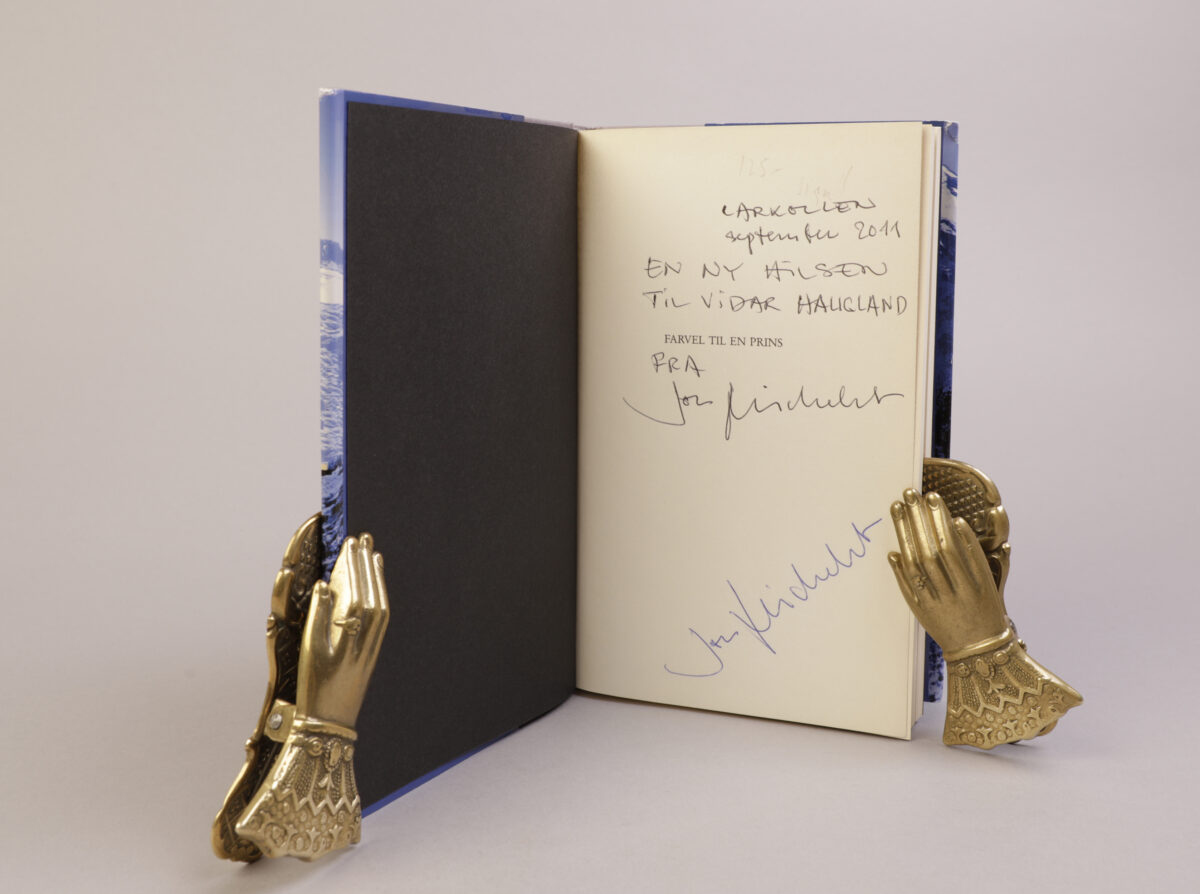 125-
LARKOLLEN
september 2011
EN NY HILSEN
TIL VIDAR HAUGLAND
FARVEL TIL EN PRINS
FRA
Jon Michelet
Jon Michelet